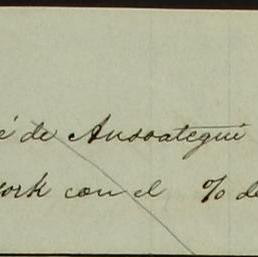 é de Ansoategui
ork con el % de